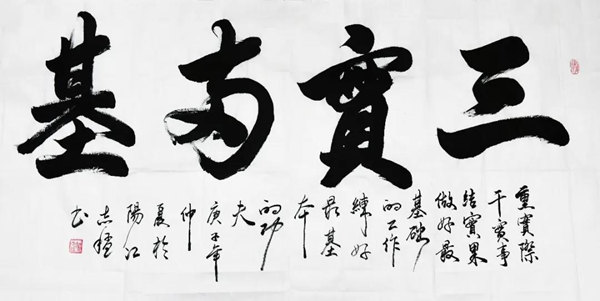 三實两基
重實際
干實事
結實果
做好最
基础
的工作
練好
最基
本
的功
夫
庚子年
仲
夏於
陽江
志
书